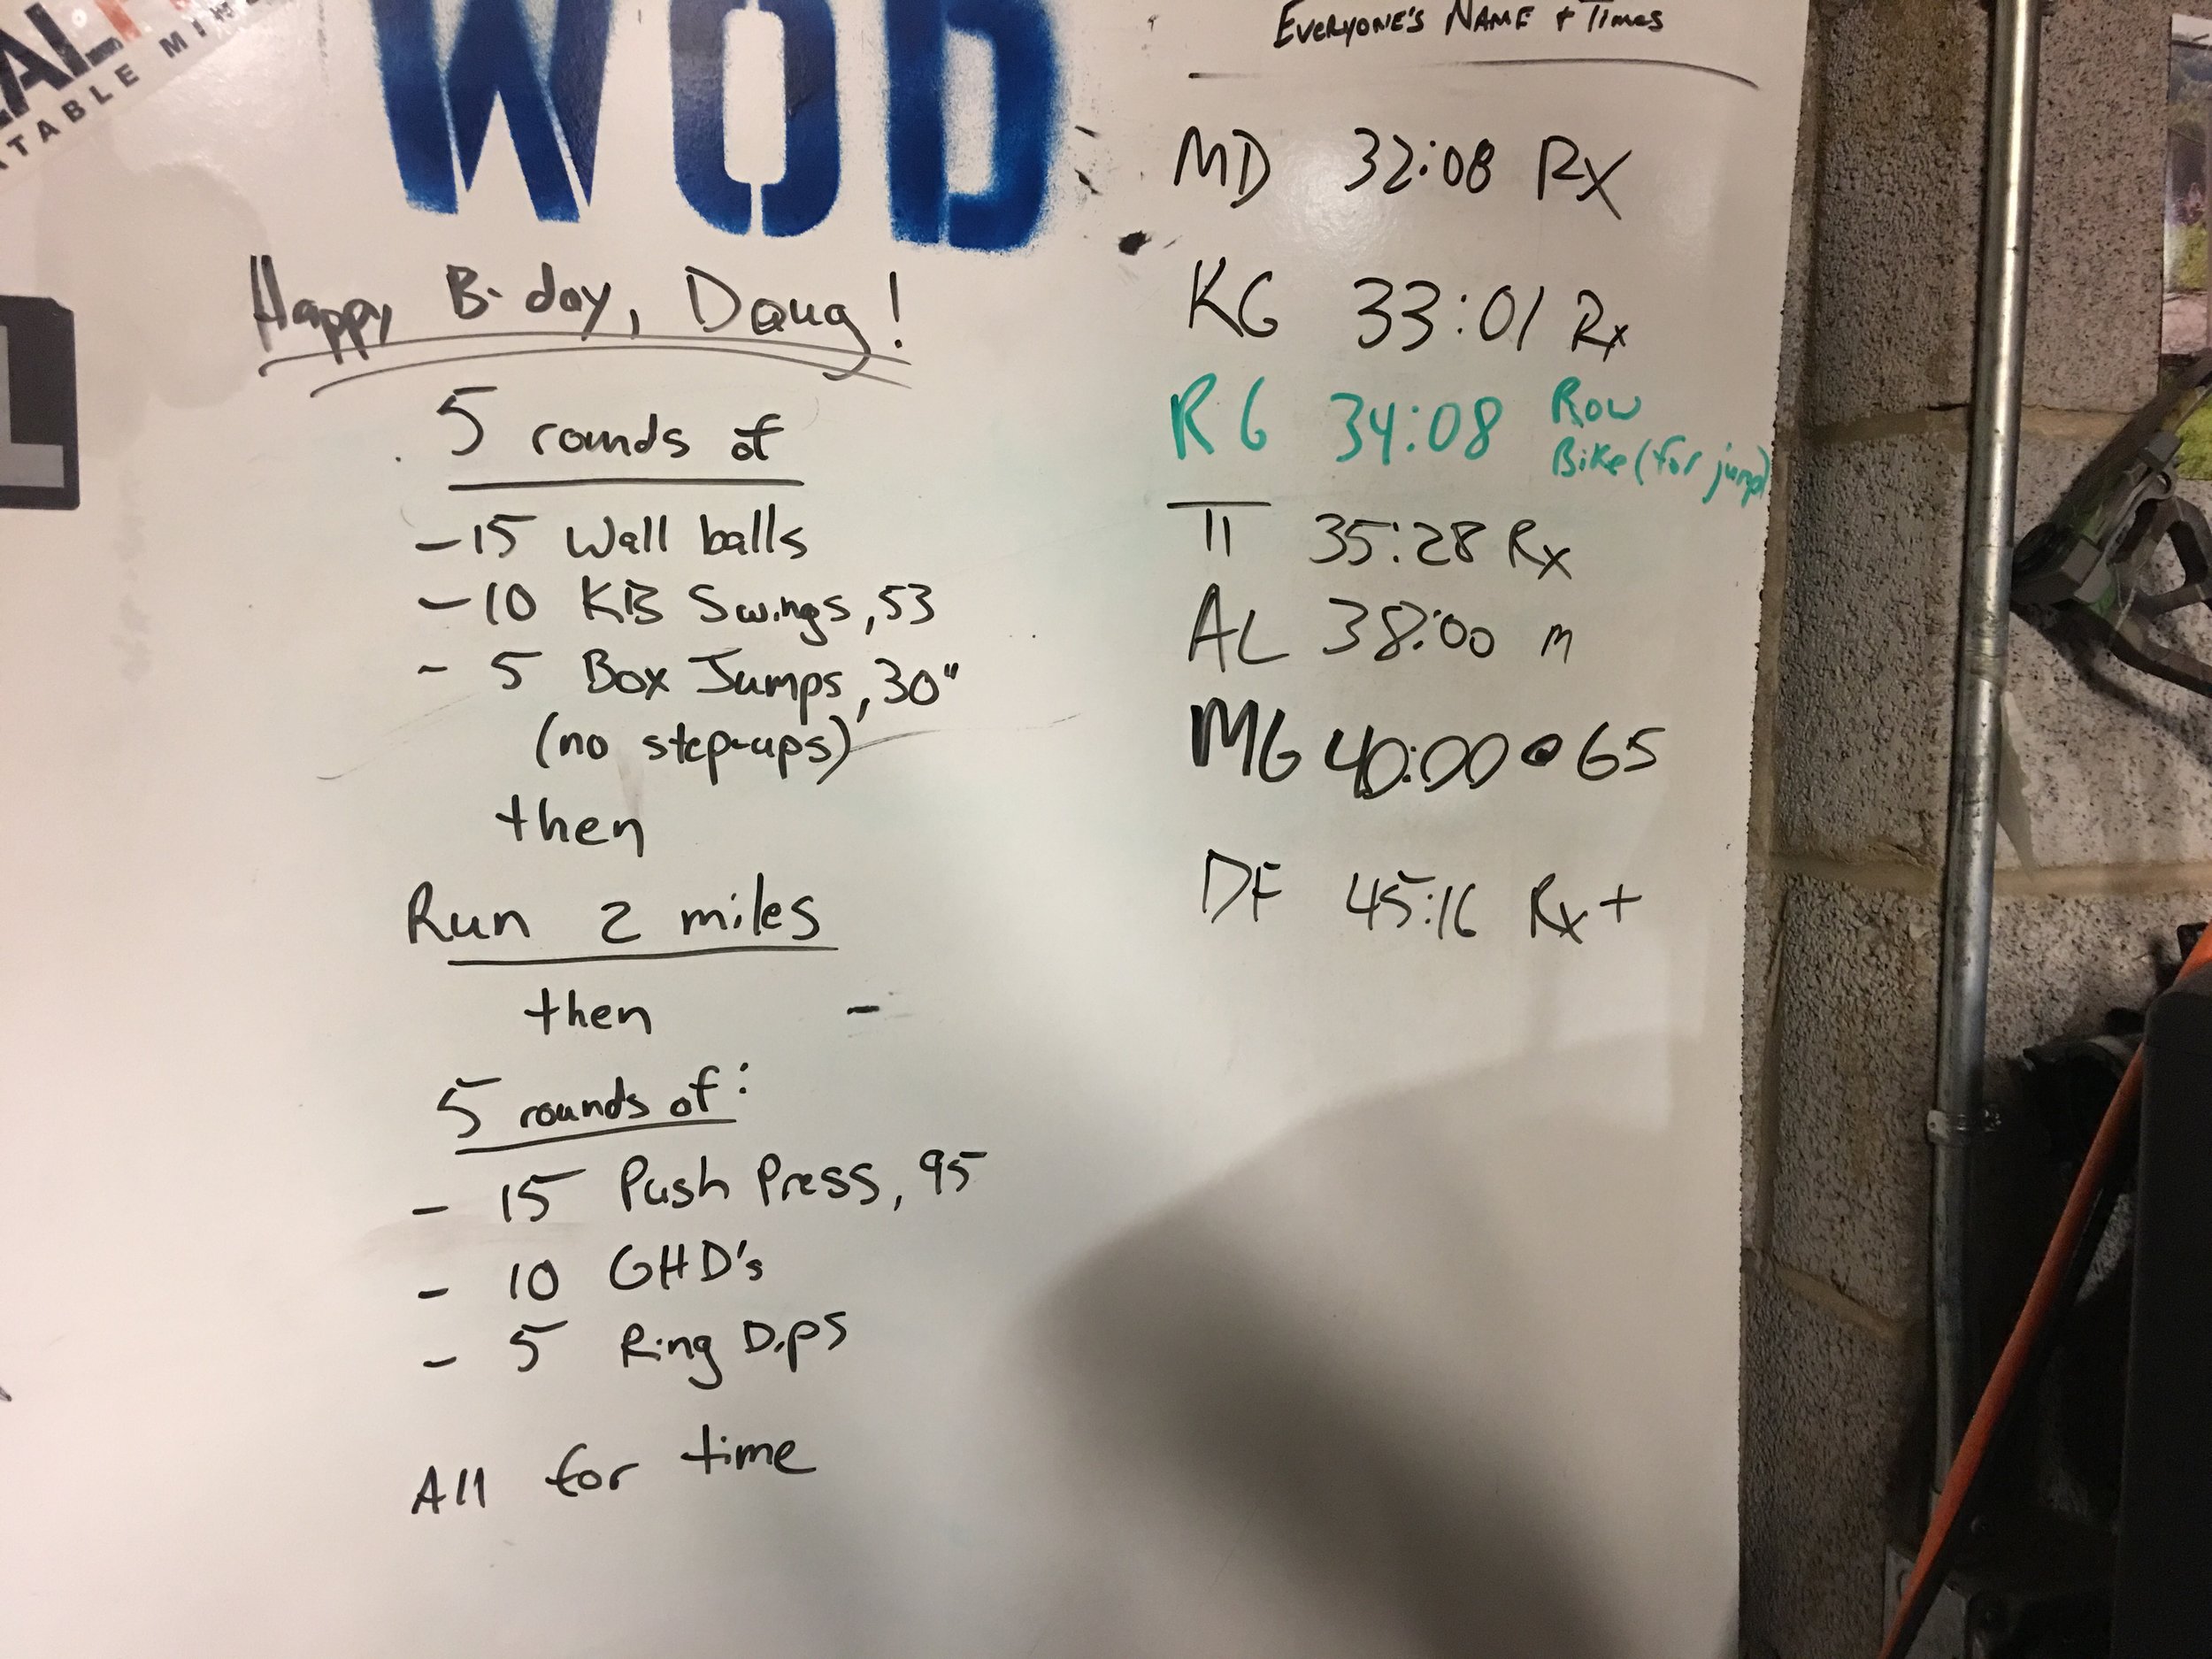 WOD
Happy B-day, Doug!
5 rounds of
- 15 Wall balls
- 10 KB Swings, 53
- 5 Box Jumps, 30"
(no step-ups)
then
Run 2 miles
then -
5 rounds of:
- 15 Push Press, 95
- 10 GHD's
- 5 Ring Dips
All for time
EVERYONE'S NAME + Times
MD 32:08 RX
KG 33:01 Rx
RG 34:08 Row
Bike (for jump)
TT 35:28 Rx
AL 38:00 m
MG 40:00 @ 65
DF 45:16 Rx+